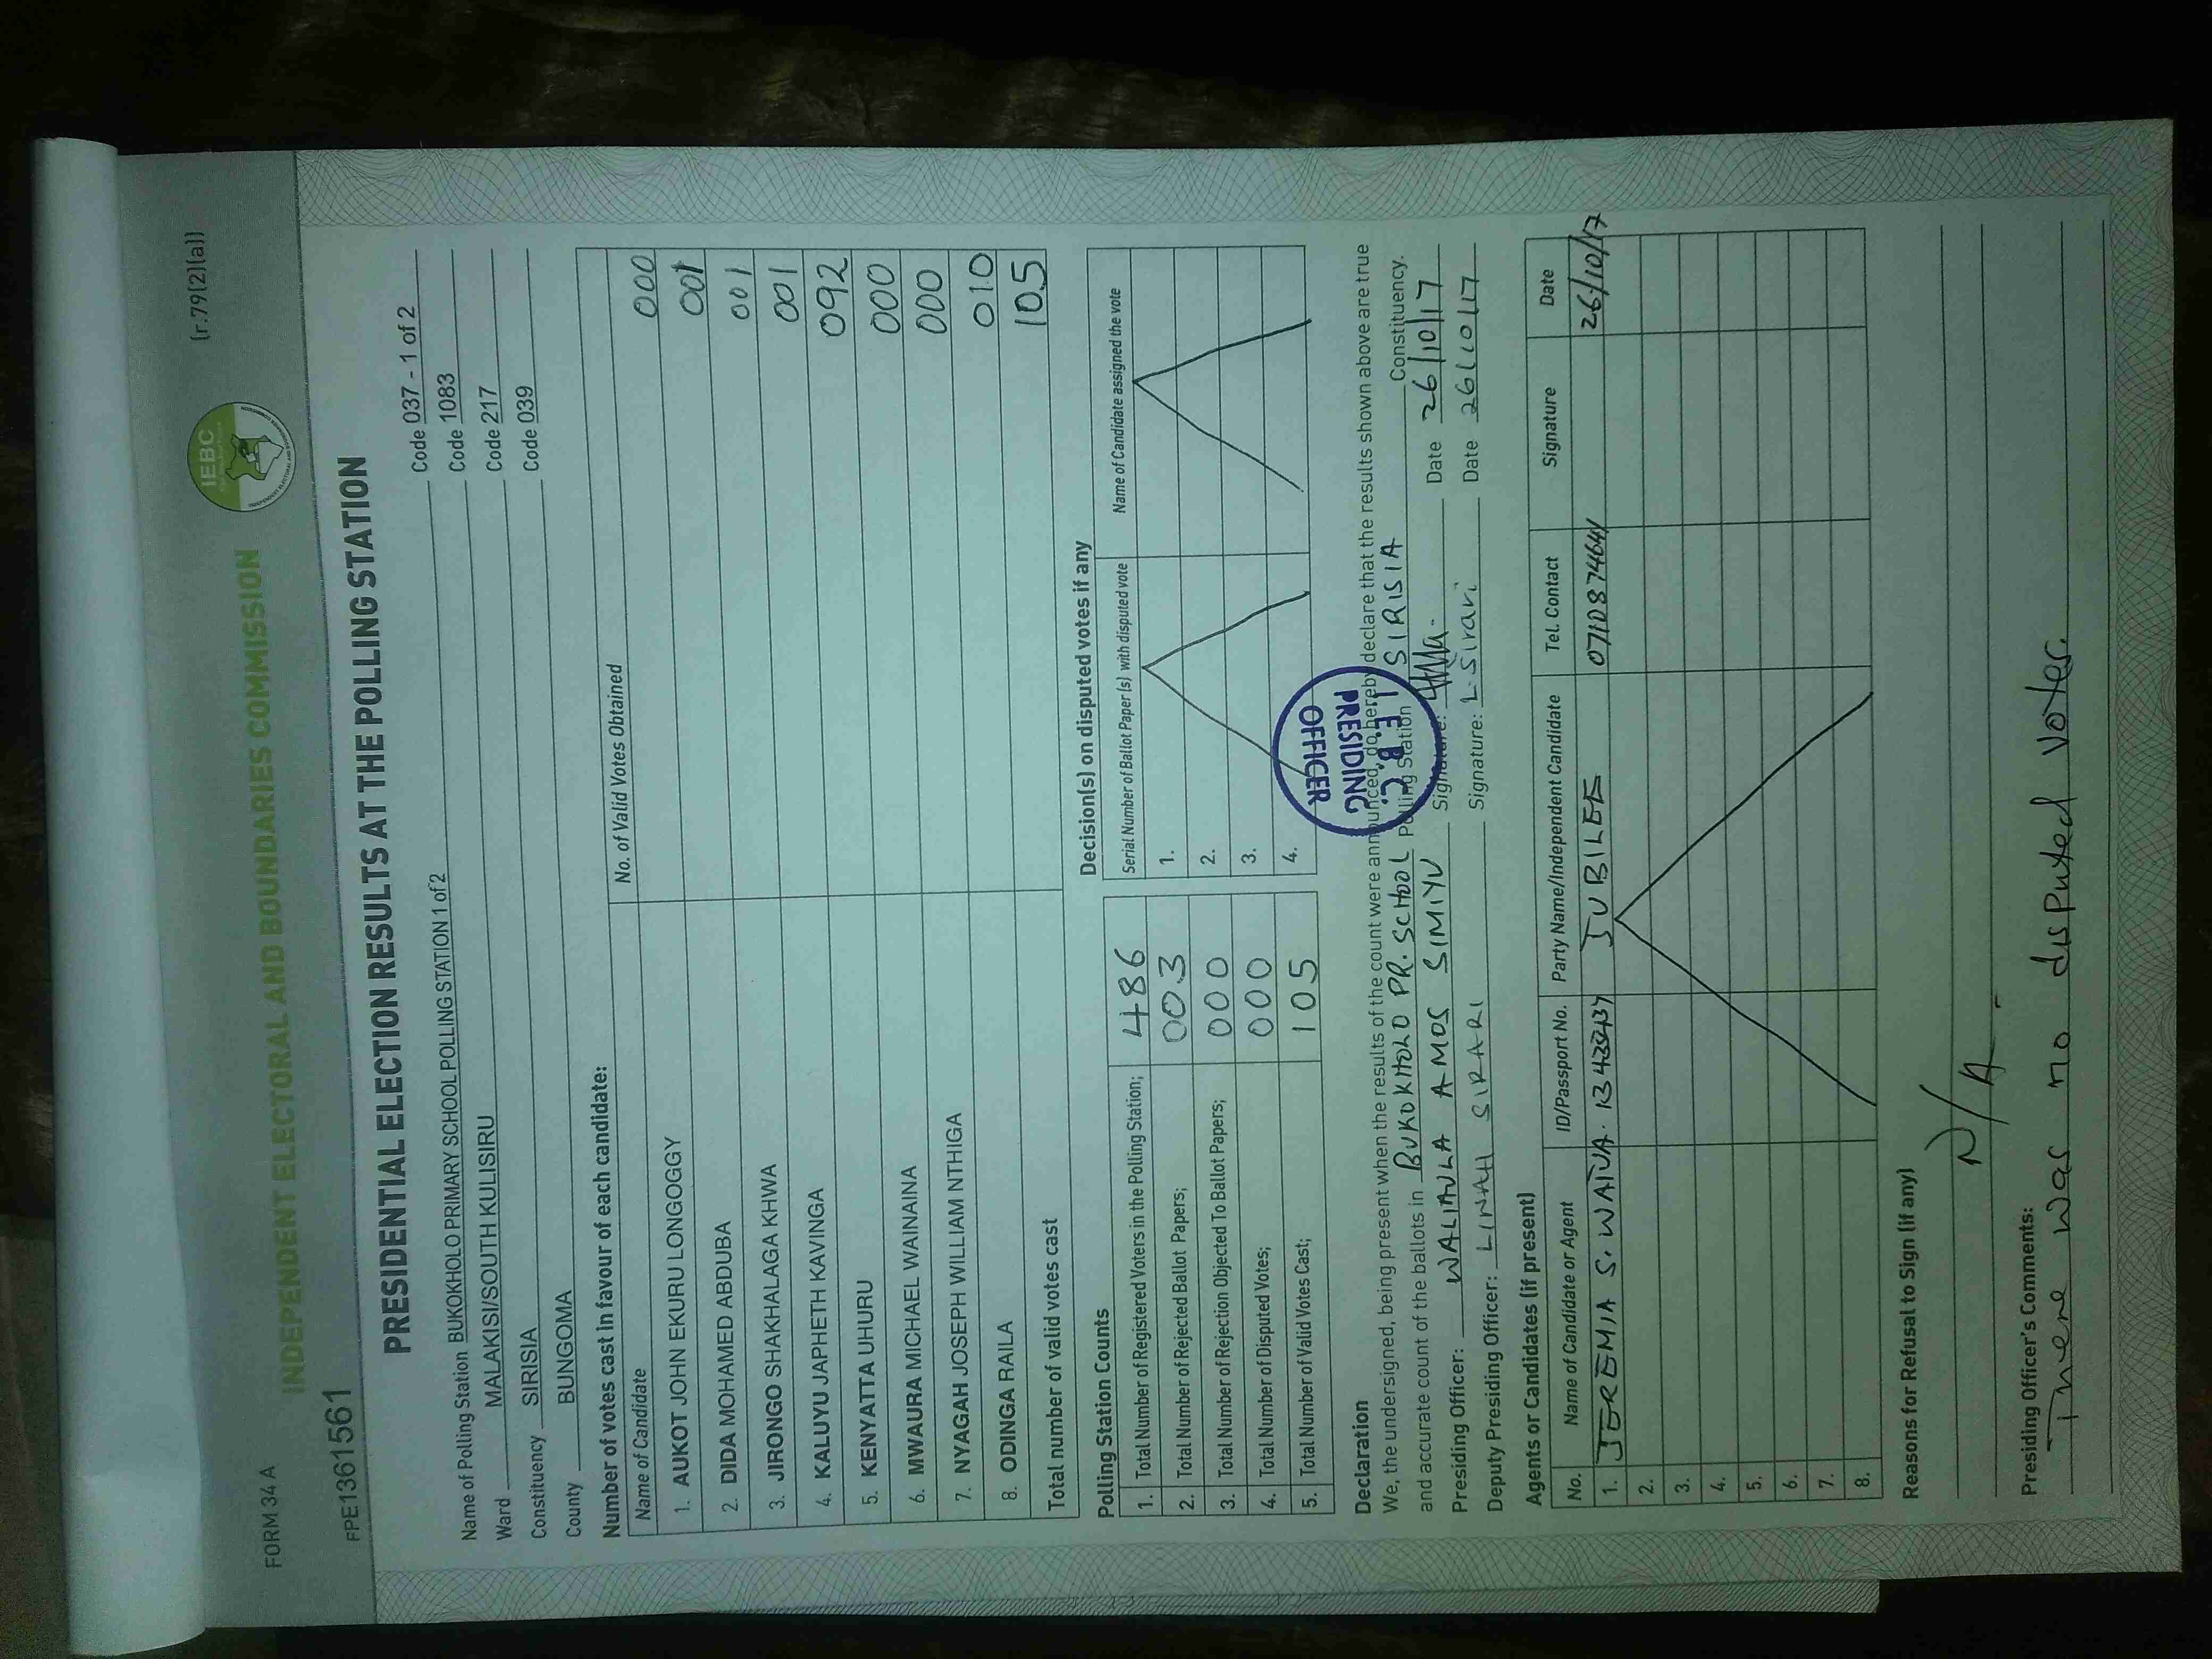 FORM 34 A
(r.79(2)(a))
IEBC
INDEPENDENT ELECTORAL AND BOUNDARIES COMMISSION
FPE1361561
PRESIDENTIAL ELECTION RESULTS AT THE POLLING STATION
Name of Polling Station BUKOKHOLO PRIMARY SCHOOL POLLING STATION 1 of 2 Code 037 - 1 of 2
Ward MALAKISI/SOUTH KULISIRU Code 1083
Constituency SIRISIA Code 217
County BUNGOMA Code 039
Number of votes cast in favour of each candidate:
Name of Candidate No. of Valid Votes Obtained
1. AUKOT JOHN EKURU LONGOGGY 000
2. DIDA MOHAMED ABDUBA 001
3. JIRONGO SHAKHALAGA KHWA 001
4. KALUYU JAPHETH KAVINGA 001
5. KENYATTA UHURU 092
6. MWAURA MICHAEL WAINAINA 000
7. NYAGAH JOSEPH WILLIAM NTHIGA 000
8. ODINGA RAILA 010
Total number of valid votes cast 105
Polling Station Counts
1. Total Number of Registered Voters in the Polling Station; 486
2. Total Number of Rejected Ballot Papers; 003
3. Total Number of Rejection Objected To Ballot Papers; 000
4. Total Number of Disputed Votes; 000
5. Total Number of Valid Votes Cast; 105
Decision(s) on disputed votes if any
Serial Number of Ballot Paper(s) with disputed vote Name of Candidate assigned the vote
1.
2.
3.
4.
I.E.B.C.
PRESIDING
OFFICER
Declaration
We, the undersigned, being present when the results of the count were announced, do hereby declare that the results shown above are true
and accurate count of the ballots in BUKOKHOLO PR. SCHOOL Polling Station SIRISIA Constituency.
Presiding Officer: WALIAULA AMOS SIMIYU Signature: Date 26/10/17
Deputy Presiding Officer: LINAH SIRARI Signature: L. Sirari Date 26/10/17
Agents or Candidates (if present)
No. Name of Candidate or Agent ID/Passport No. Party Name/Independent Candidate Tel. Contact Signature Date
1. JEREMIA S. WAIUA. JUBILEE 26/10/17
2.
3.
4.
5.
6.
7.
8.
Reasons for Refusal to Sign (if any)
N/A -
Presiding Officer's Comments:
There was no disputed votes.